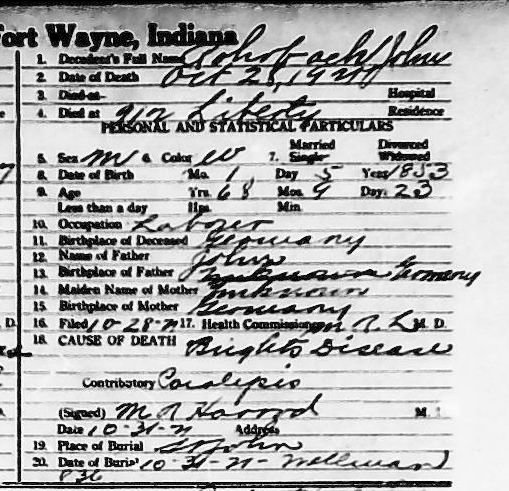 Fort Wayne, Indiana
1. Decedent's Full Name Rohrback John
2. Date of Death Oct 28, 1921
3. Died at Hospital
4. Died at 912 Liberty Residence
PERSONAL AND STATISTICAL PARTICULARS
Married Divorced
5. Sex M 6. Color W 7. Single Widowed
8. Date of Birth Mo. 1 Day 5 Year 1853
9. Age Yrs. 68 Mos. 9 Day. 23
Less than a day Hrs. Min.
10. Occupation Laborer
11. Birthplace of Deceased Germany
12. Name of Father John
13. Birthplace of Father Germany
14. Maiden Name of Mother Unknown
15. Birthplace of Mother Germany
D. 16. Filed 10-28-21 17. Health Commissioner M. D.
18. CAUSE OF DEATH Brights Disease
Contributory
(Signed) M R Harrod M.
Date 10-31-21 Address
19. Place of Burial St John
20. Date of Burial 10-31-21